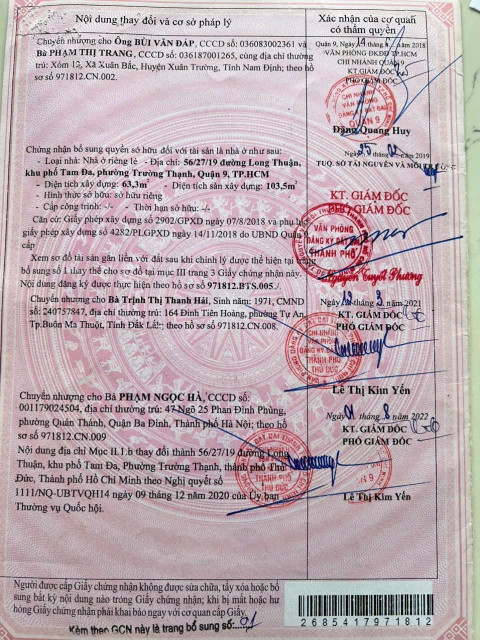 Nội dung thay đổi và cơ sở pháp lý
Xác nhận của cơ quan
có thẩm quyền
Chuyển nhượng cho Ông BÙI VĂN ĐÁP, CCCD số: 036083002361 và
Bà PHẠM THỊ TRANG, CCCD số: 036187001265, cùng địa chỉ thường
trú: Xóm 12, Xã Xuân Bắc, Huyện Xuân Trường, Tỉnh Nam Định; theo hồ
sơ số 971812.CN.002.
Quận 9, Ngày 14 2018
VĂN PHÒNG ĐKĐĐ TP.HCM
CHI NHÁNH QUẬN 9
KT.GIÁM ĐỐC
PHÓ GIÁM ĐỐC
CHI NHÁNH
VĂN PHÒNG
ĐĂNG KÝ ĐẤT ĐAI
QUẬN 9
Đặng Quang Huy
Chứng nhận bổ sung quyền sở hữu đối với tài sản là nhà ở như sau:
- Loại nhà: Nhà ở riêng lẻ - Địa chỉ: 56/27/19 đường Long Thuận,
khu phố Tam Đa, phường Trường Thạnh, Quận 9, TP.HCM
- Diện tích xây dựng: 63,3m² - Diện tích sàn xây dựng: 103,5m²
- Hình thức sở hữu: sở hữu riêng
- Cấp công trình: -/- - Thời hạn sở hữu: -/-
Căn cứ: Giấy phép xây dựng số 2902/GPXD ngày 07/8/2018 và phụ
giấy phép số 4282/PLGPXD ngày 14/11/2018 do UBND Quận 9
cấp
Xem sơ đồ tài sản gắn liền với đất sau khi chỉnh lý được thể hiện tại trang
bổ sung số 1 thay thế cho sơ đồ tại mục III trang 3 Giấy chứng nhận này.
Nội dung đăng ký được thực hiện theo hồ sơ số 971812.BTS.005./
Ngày 25 2019
TUQ. SỞ TÀI NGUYÊN VÀ MÔI
KT. GIÁM ĐỐC
GIÁM ĐỐC
VĂN PHÒNG
ĐĂNG KÝ ĐẤT
THÀNH PHỐ
Nguyễn Tuyết Phương
Chuyển nhượng cho Bà Trịnh Thị Thanh Hải, Sinh năm 1971, CMND
số: 240757847, địa chỉ thường trú: 164 Đinh Tiên Hoàng, phường Tự An,
Tp.Buôn Ma Thuột, Tỉnh Đăk Lăk; theo hồ sơ số 971812.CN.008.
3 2021
KT. GIÁM ĐỐC
PHÓ GIÁM ĐỐC
CHI NHÁNH
THÀNH PHỐ
THỦ ĐỨC
Lê Thị Kim Yến
Chuyển nhượng cho Bà PHẠM NGỌC HÀ, CCCD số:
001179024504, địa chỉ thường trú: 47 Ngõ 25 Phan Đình Phùng,
phường Quán Thánh, Quận Ba Đình, Thành phố Hà Nội; theo hồ
sơ số 971812.CN.009
Nội dung địa chỉ Mục II.1.b thay đổi thành 56/27/19 đường Long
Thuận, khu phố Tam Đa, Phường Trường Thạnh, thành phố Thủ
Đức, Thành phố Hồ Chí Minh theo Nghị quyết số
1111/NQ-UBTVQH14 ngày 09 tháng 12 năm 2020 của Ủy ban
Thường vụ Quốc hội.
Ngày 01 tháng 8 năm 2022
KT. GIÁM ĐỐC
PHÓ GIÁM ĐỐC
THÀNH PHỐ
THỦ ĐỨC
Lê Thị Kim Yến
Người được cấp Giấy chứng nhận không được sửa chữa, tẩy xóa hoặc bổ
sung bất kỳ nội dung nào trong Giấy chứng nhận; khi bị mất hoặc hư
hỏng Giấy chứng nhận phải khai báo ngay với cơ quan cấp Giấy.
2685417971812
Kèm theo GCN này là trang bổ sung số: 01